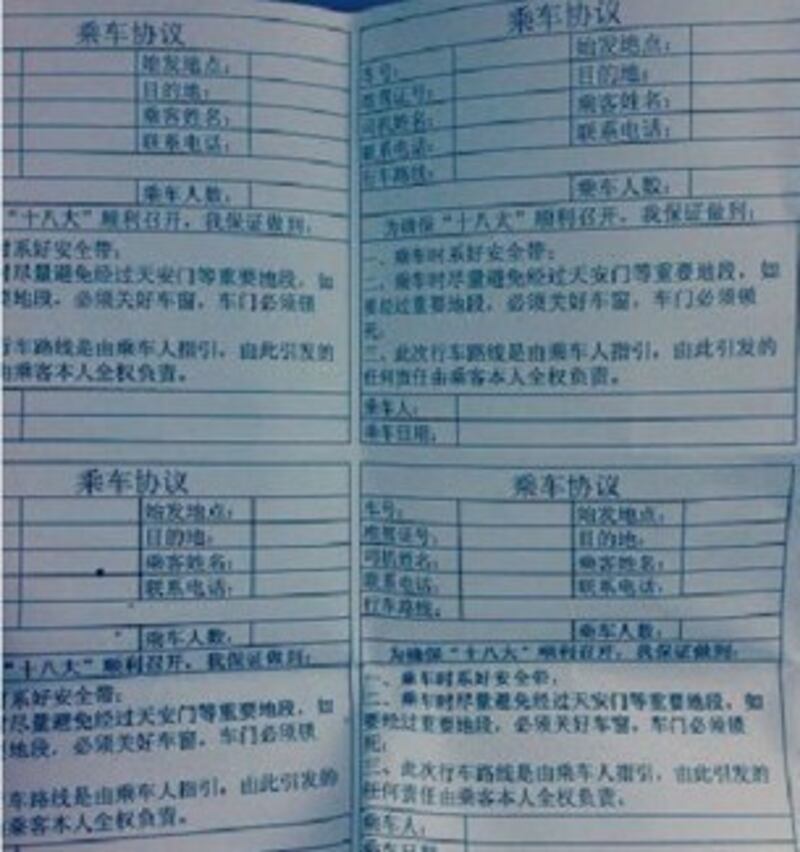 乘车协议
始发地点：
目的地：
乘客姓名：
联系电话：
乘车人数：
“十八大”顺利召开，我保证做到：
时系好安全带；
时尽量避免经过天安门等重要地段，如
要地段，必须关好车窗，车门必须锁
行车路线是由乘车人指引，由此引发的
由乘客本人全权负责。
乘车协议
车号： 始发地点：
准驾证号： 目的地：
司机姓名： 乘客姓名：
联系电话： 联系电话：
行车路线：
乘车人数：
为确保“十八大”顺利召开，我保证做到：
一、乘车时系好安全带；
二、乘车时尽量避免经过天安门等重要地段，如
要经过重要地段，必须关好车窗，车门必须锁
死；
三、此次行车路线是由乘车人指引，由此引发的
任何责任由乘客本人全权负责。
乘车人：
乘车日期：
乘车协议
始发地点：
目的地：
乘客姓名：
联系电话：
乘车人数：
“十八大”顺利召开，我保证做到：
时系好安全带；
尽量避免经过天安门等重要地段，如
地段，必须关好车窗，车门必须锁
车路线是由乘车人指引，由此引发的
乘客本人全权负责。
乘车协议
车号： 始发地点：
准驾证号： 目的地：
司机姓名： 乘客姓名：
联系电话： 联系电话：
行车路线：
乘车人数：
为确保“十八大”顺利召开，我保证做到：
一、乘车时系好安全带；
二、乘车时尽量避免经过天安门等重要地段，如
要经过重要地段，必须关好车窗，车门必须锁
死；
三、此次行车路线是由乘车人指引，由此引发的
任何责任由乘客本人全权负责。
乘车人：
乘车日期